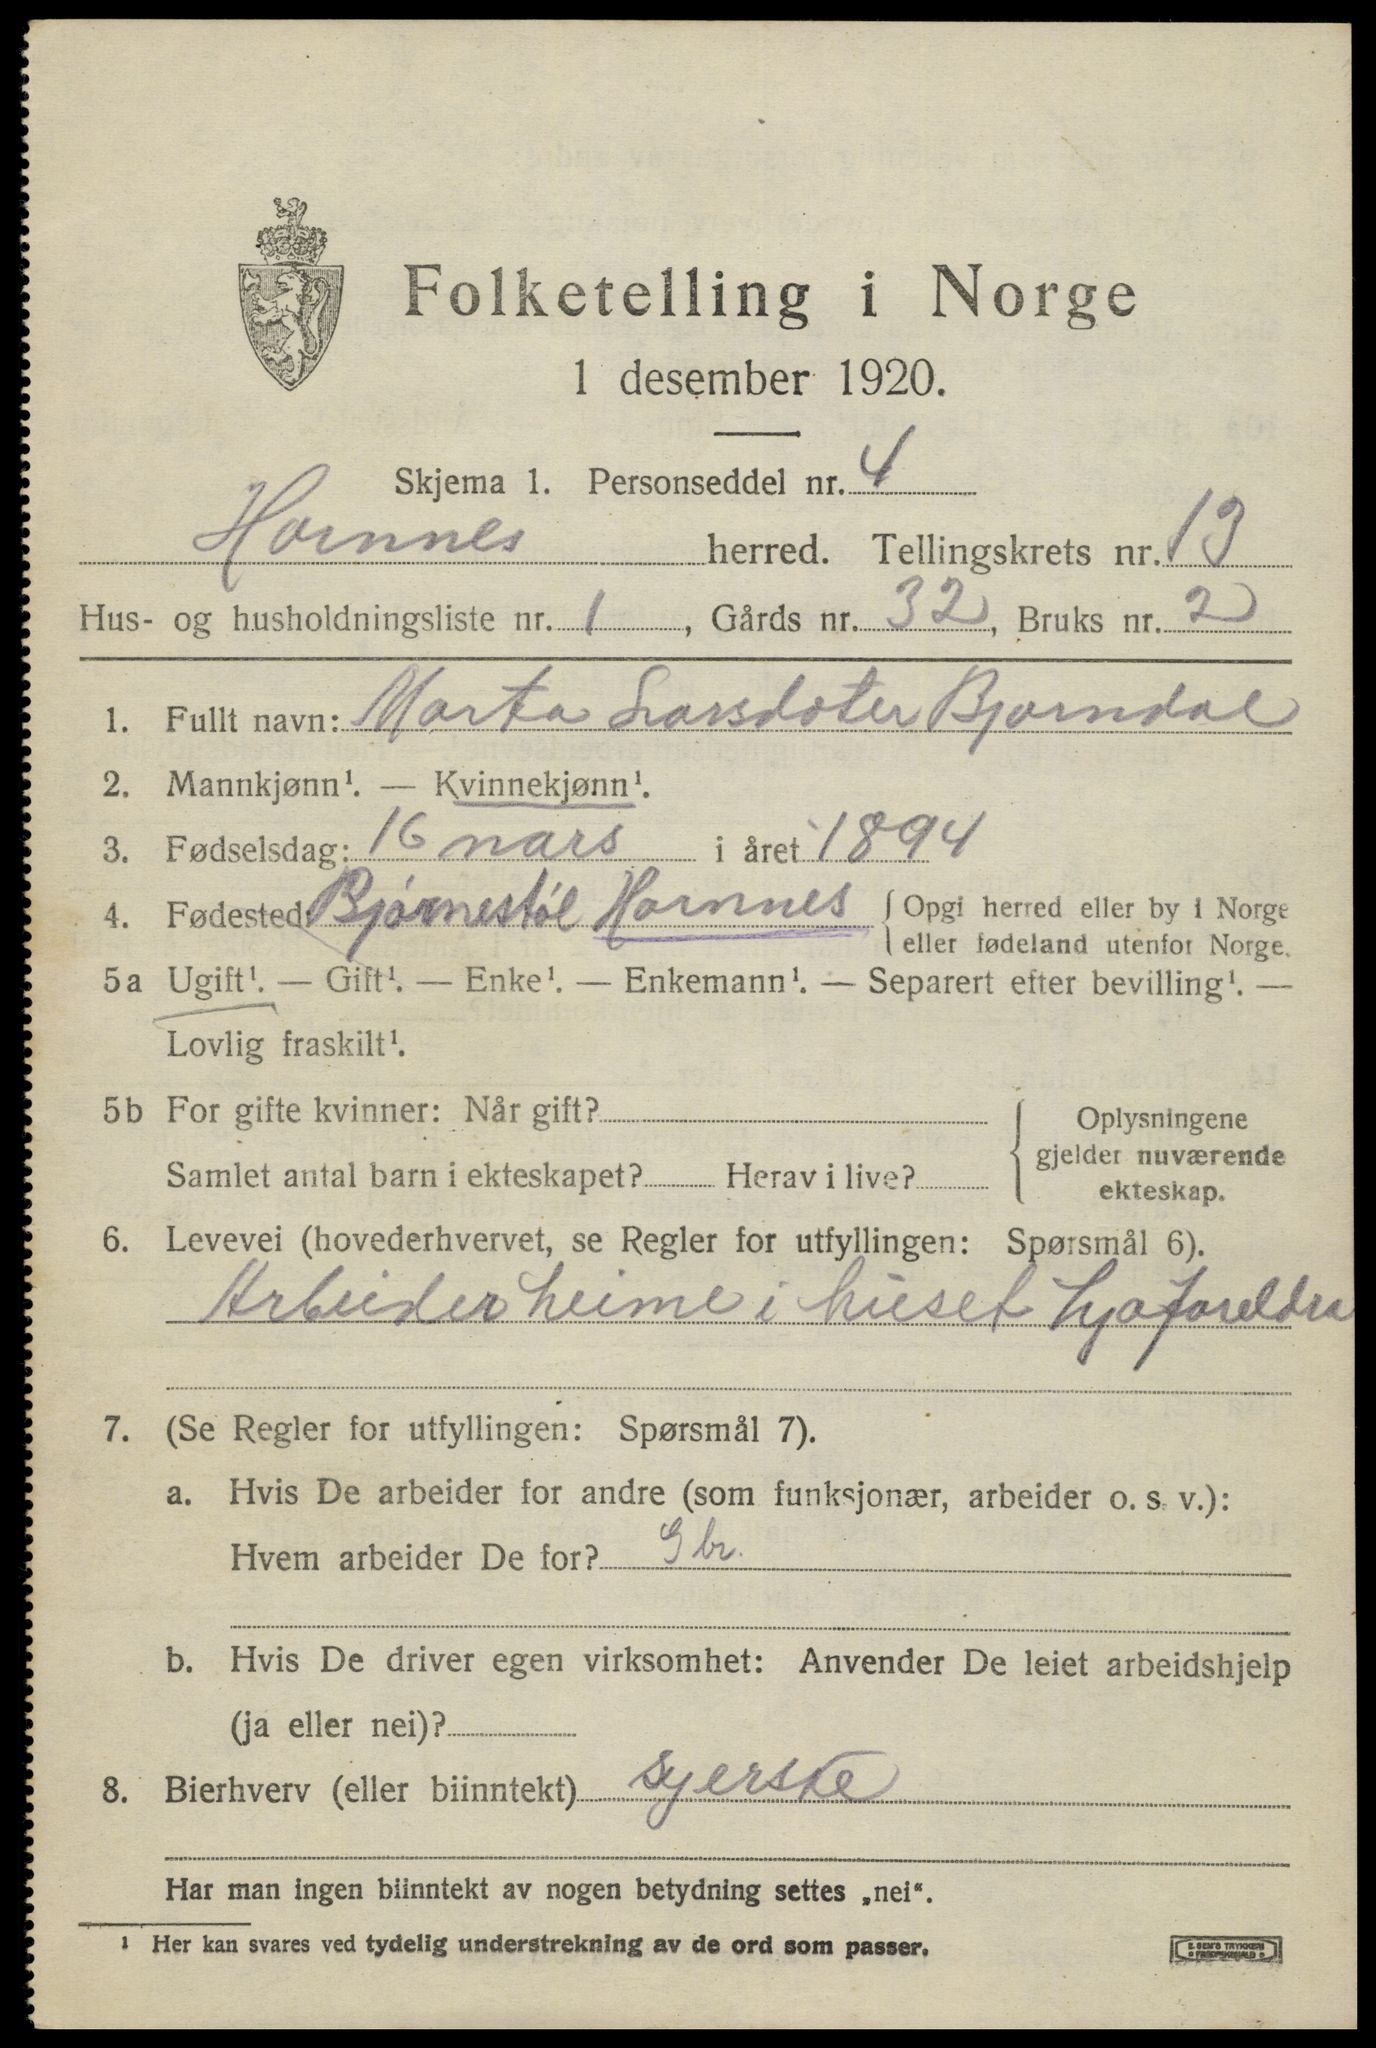 Folketelling i Norge
1 desember 1920.
Skjema 1. Personseddel nr. 4
Hornnes herred. Tellingskrets nr. 13
Hus- og husholdningsliste nr. 1, Gårds nr. 32, Bruks nr. 2
1. Fullt navn: Marta Larsdoter Bjorndal
2. Mannkjønn¹. — Kvinnekjønn¹.
3. Fødselsdag: 16 mars i året 1894
4. Fødested: Bjørnestøl Hornnes { Opgi herred eller by i Norge
eller fødeland utenfor Norge.
5a Ugift¹. — Gift¹. — Enke¹. — Enkemann¹. — Separert efter bevilling¹. —
Lovlig fraskilt¹.
5b For gifte kvinner: Når gift?
Samlet antal barn i ekteskapet? Herav i live?
Oplysningene
gjelder nuværende
ekteskap.
6. Levevei (hovederhvervet, se Regler for utfyllingen: Spørsmål 6).
Arbeider heime i huset hja foreldra
7. (Se Regler for utfyllingen: Spørsmål 7).
a. Hvis De arbeider for andre (som funksjonær, arbeider o. s. v.):
Hvem arbeider De for? Gbr.
b. Hvis De driver egen virksomhet: Anvender De leiet arbeidshjelp
(ja eller nei)?
8. Bierhverv (eller biinntekt) syerske
Har man ingen biinntekt av nogen betydning settes „nei“.
¹ Her kan svares ved tydelig understrekning av de ord som passer.